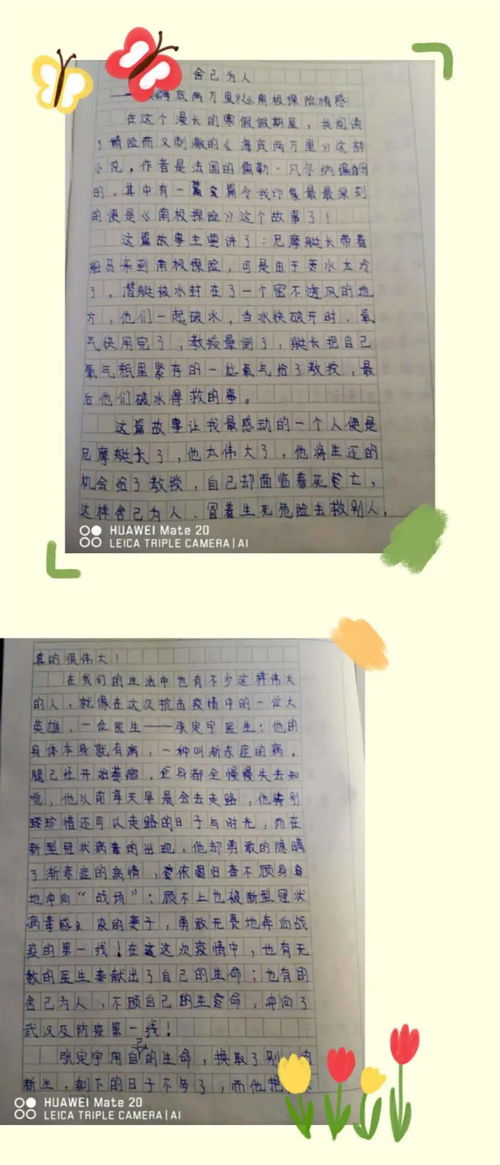 舍己为人
海底两万里之南极探险情感
在这个漫长的寒假假期里，我阅读
了精险而又刺激的《海底两万里》这部
小说，作者是法国的儒勒·凡尔纳编写
的。其中有一篇令我印象最最深刻
的便是《南极探险》这个故事了！
这篇故事主要讲了：尼摩艇长带着
船员来到南极探险，可是由于
了，潜艇被冰封在了一个密不透风的地
方，他们一起破冰，当冰快破开时，氧
气快用完了，教授晕倒了，艇长把自己
氧气瓶里紧存的一些氧气给了教授，最
后他们破冰得救的事。
这篇故事让我最感动的一个人便是
尼摩艇长了，他太伟大了，他将生还的
机会给了教授，自己却面临着死亡，
这样舍己为人、冒着生死危险去救别人，
HUAWEI Mate 20
LEICA TRIPLE CAMERA | AI
真的很伟大！
在我们的生活中也有不少这样伟大
的人，就像在这次抗击疫情中的一位大
英雄，一位医生——张定宇医生：他的
身体本身就有病，一种叫渐冻症的病，
腿已经开始萎缩，全身都会慢慢失去知
觉，他以前每天早晨会去走路，他特别
珍惜还可以走路的日子与时光，而在
新型冠状病毒的出现，他却勇敢的隐瞒
了渐冻症的病情，义不顾身
地冲向“战场”；顾不上也被新型冠状
病毒感染的妻子，勇敢无畏地奔向战
疫的第一线！在这次疫情中，也有无
数的医生奉献出了自己的生命；也有的
舍己为人，不顾自己的生命，冲向了
武汉及防疫第一线！
张定宇用自己的生命，换取了别
新生，剩下的日子不多了，而他把
HUAWEI Mate 20
LEICA TRIPLE CAMERA | AI